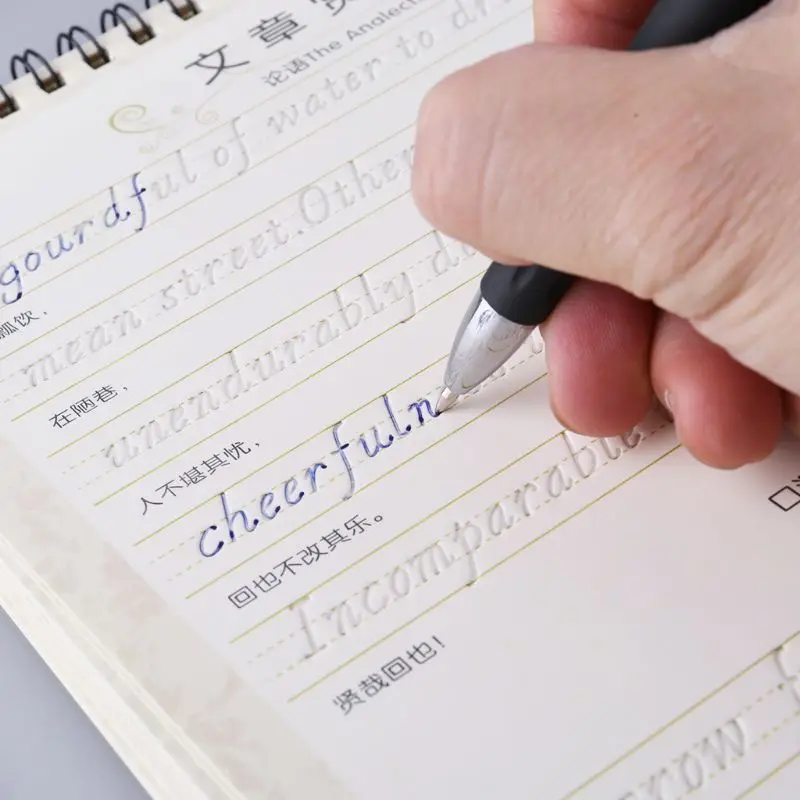 文章赏
论语The Analects
gourdful of water to dr
瓢饮，
mean street.Other
在陋巷，
unendurably di
人不堪其忧，
cheerfuln
回也不改其乐。
Incomparable
贤哉回也！
row